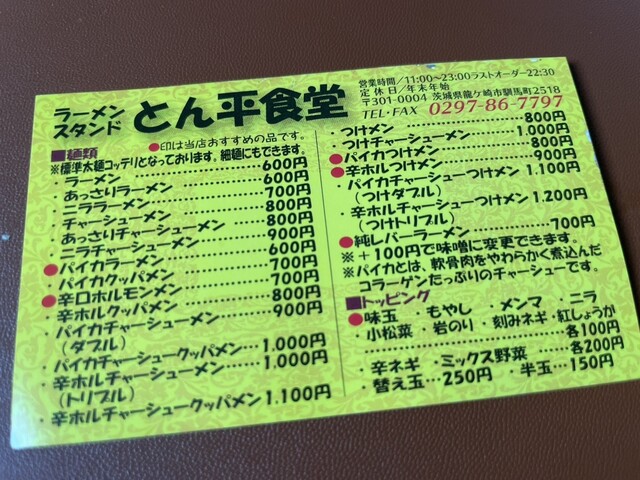 ラーメン
スタンド
とん平食堂
営業時間/11:00~23:00ラストオーダー22:30
定休日/年末年始
〒301-0004 茨城県龍ケ崎市馴馬町2518
TEL・FAX 0297-86-7797
●印は当店おすすめの品です。
■麺類
※標準太麺コッテリとなっております。細麺にもできます。
・ラーメン…………………600円
・あっさりラーメン…………600円
・ニララーメン……………700円
・チャーシューメン…………800円
・あっさりチャーシューメン……800円
・ニラチャーシューメン………900円
●パイカラーメン……………600円
・パイカクッパメン…………700円
●辛口ホルモンメン…………700円
・辛ホルクッパメン…………800円
・パイカチャーシューメン……900円
(ダブル)
・パイカチャーシュークッパメン…1.000円
・辛ホルチャーシューメン……1.000円
(トリプル)
・辛ホルチャーシュークッパメン…1.100円
・つけメン…………………800円
・つけチャーシューメン………1.000円
●パイカつけメン……………800円
●辛ホルつけメン……………900円
・パイカチャーシューつけメン…1.100円
(つけダブル)
・辛ホルチャーシューつけメン…1.200円
(つけトリプル)
●純レバーラーメン…………700円
※+100円で味噌に変更できます。
※パイカとは、軟骨肉をやわらかく煮込んだ
コラーゲンたっぷりのチャーシューです。
■トッピング
●味玉 ・もやし ・メンマ ・ニラ
・小松菜 ・岩のり ・刻みネギ ・紅しょうが
…………各100円
・辛ネギ ・ミックス野菜 ……各200円
・替え玉…250円 ・半玉…150円